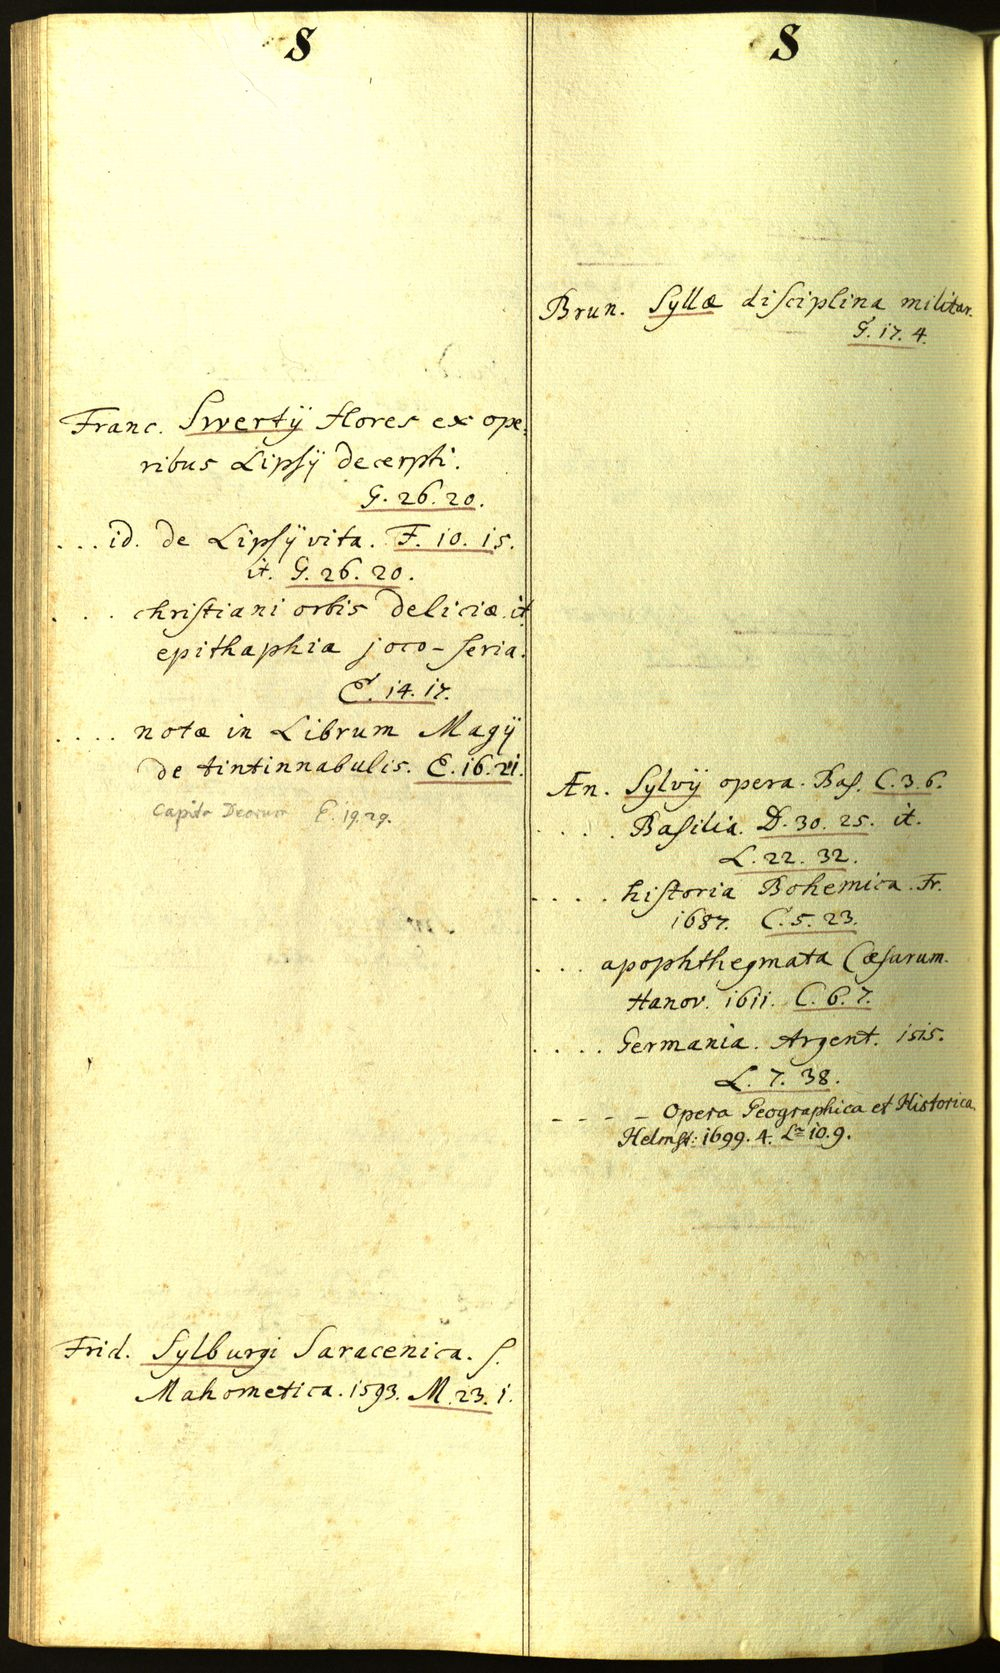 S
Franc. Swertÿ flores ex ope:
ribus Lipsÿ decerpti.
G. 26. 20.
... id. de Lipsÿ vita. F. 10. 15.
it. G. 26. 20.
. . . christiani orbis deliciæ. it
epithaphia joco-seria.
E. 14. 17.
. . . . notæ in Librum Magÿ
de tintinnabulis. E. 16. 21.
Capita Deorum E. 19. 29.
Frid. Sylburgi Saracenica. s.
Mahometica. 1593. M. 23. 1.
S
Brun. Syllæ disciplina militar.
G. 17. 4.
Æn. Sylvÿ opera. Bas. C. 3. 6.
. . . . Basilia. D. 30. 25. it.
L. 22. 32.
. . . . historia Bohemica. Fr.
1687. C. 5. 23.
. . . apophthegmata Cæsarum.
Hanov. 1611. C. 6. 7.
. . . . Germania. Argent. 1515.
L. 7. 38.
- - - - Opera Geographica et Historica
Helmst: 1699. 4. 10. 9.